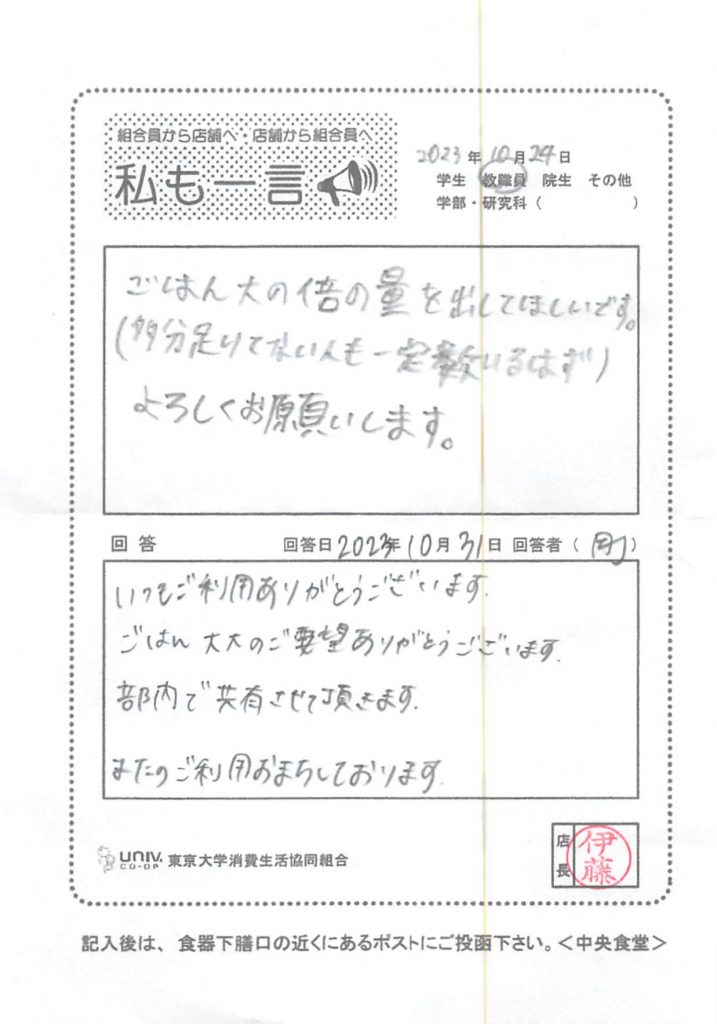 組合員から店舗へ・店舗から組合員へ
私も一言
2023年10月24日
学生 教職員 院生 その他
学部・研究科( )
ごはん大の倍の量を出してほしいです。
(多分足りてない人も一定数いるはず)
よろしくお願いします。
回答 回答日2023年10月31日 回答者( )
いつもご利用ありがとうございます.
ごはん大大のご要望ありがとうございます.
部内で共有させて頂きます.
またのご利用おまちしております.
UNIV. CO-OP 東京大学消費生活協同組合
店長 伊藤
記入後は、食器下膳口の近くにあるポストにご投函下さい。<中央食堂>